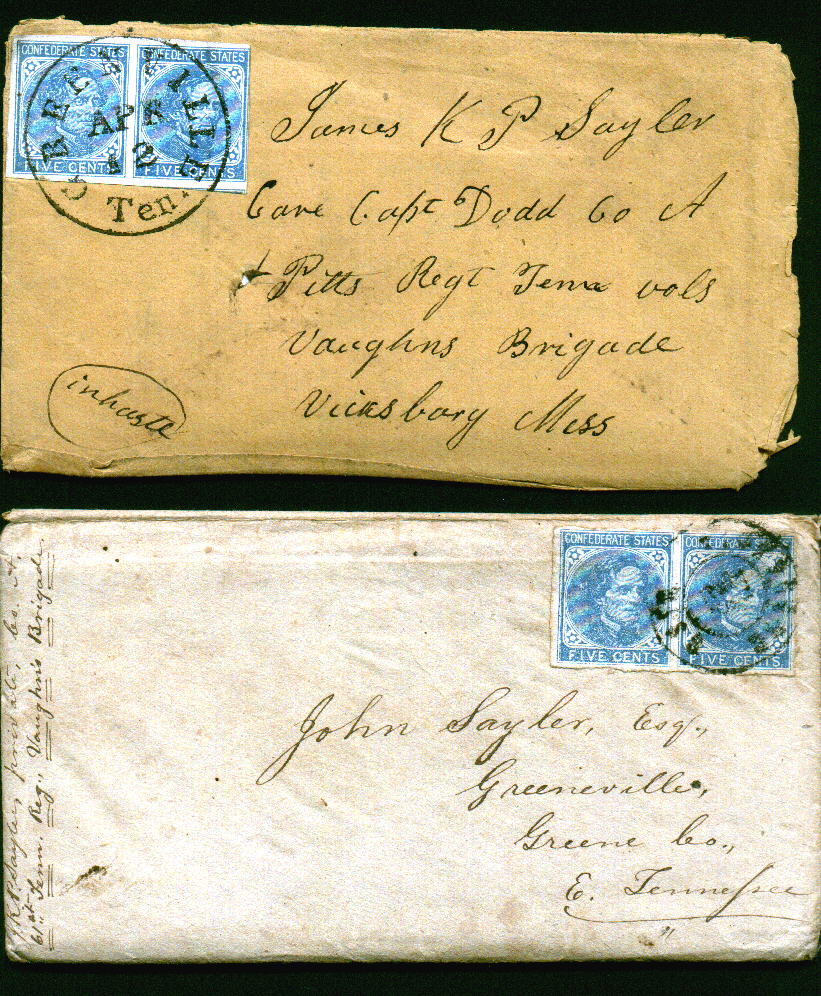 CONFEDERATE STATES
CONFEDERATE STATES
FIVE CENTS
FIVE CENTS
GREENVILLE
APR
10
Ten.
James K P Sayler
Care Capt Dodd Co A
Pitts Regt Tenn vols
Vaughns Brigade
Vicksburg Miss
in haste
CONFEDERATE STATES
FIVE CENTS
FIVE CENTS
John Sayler, Esq.,
Greeneville,
Greene Co.,
E. Tennessee
J.K.P. Saylers private, Co. A.
61st Tenn. Reg. Vaughns Brigade